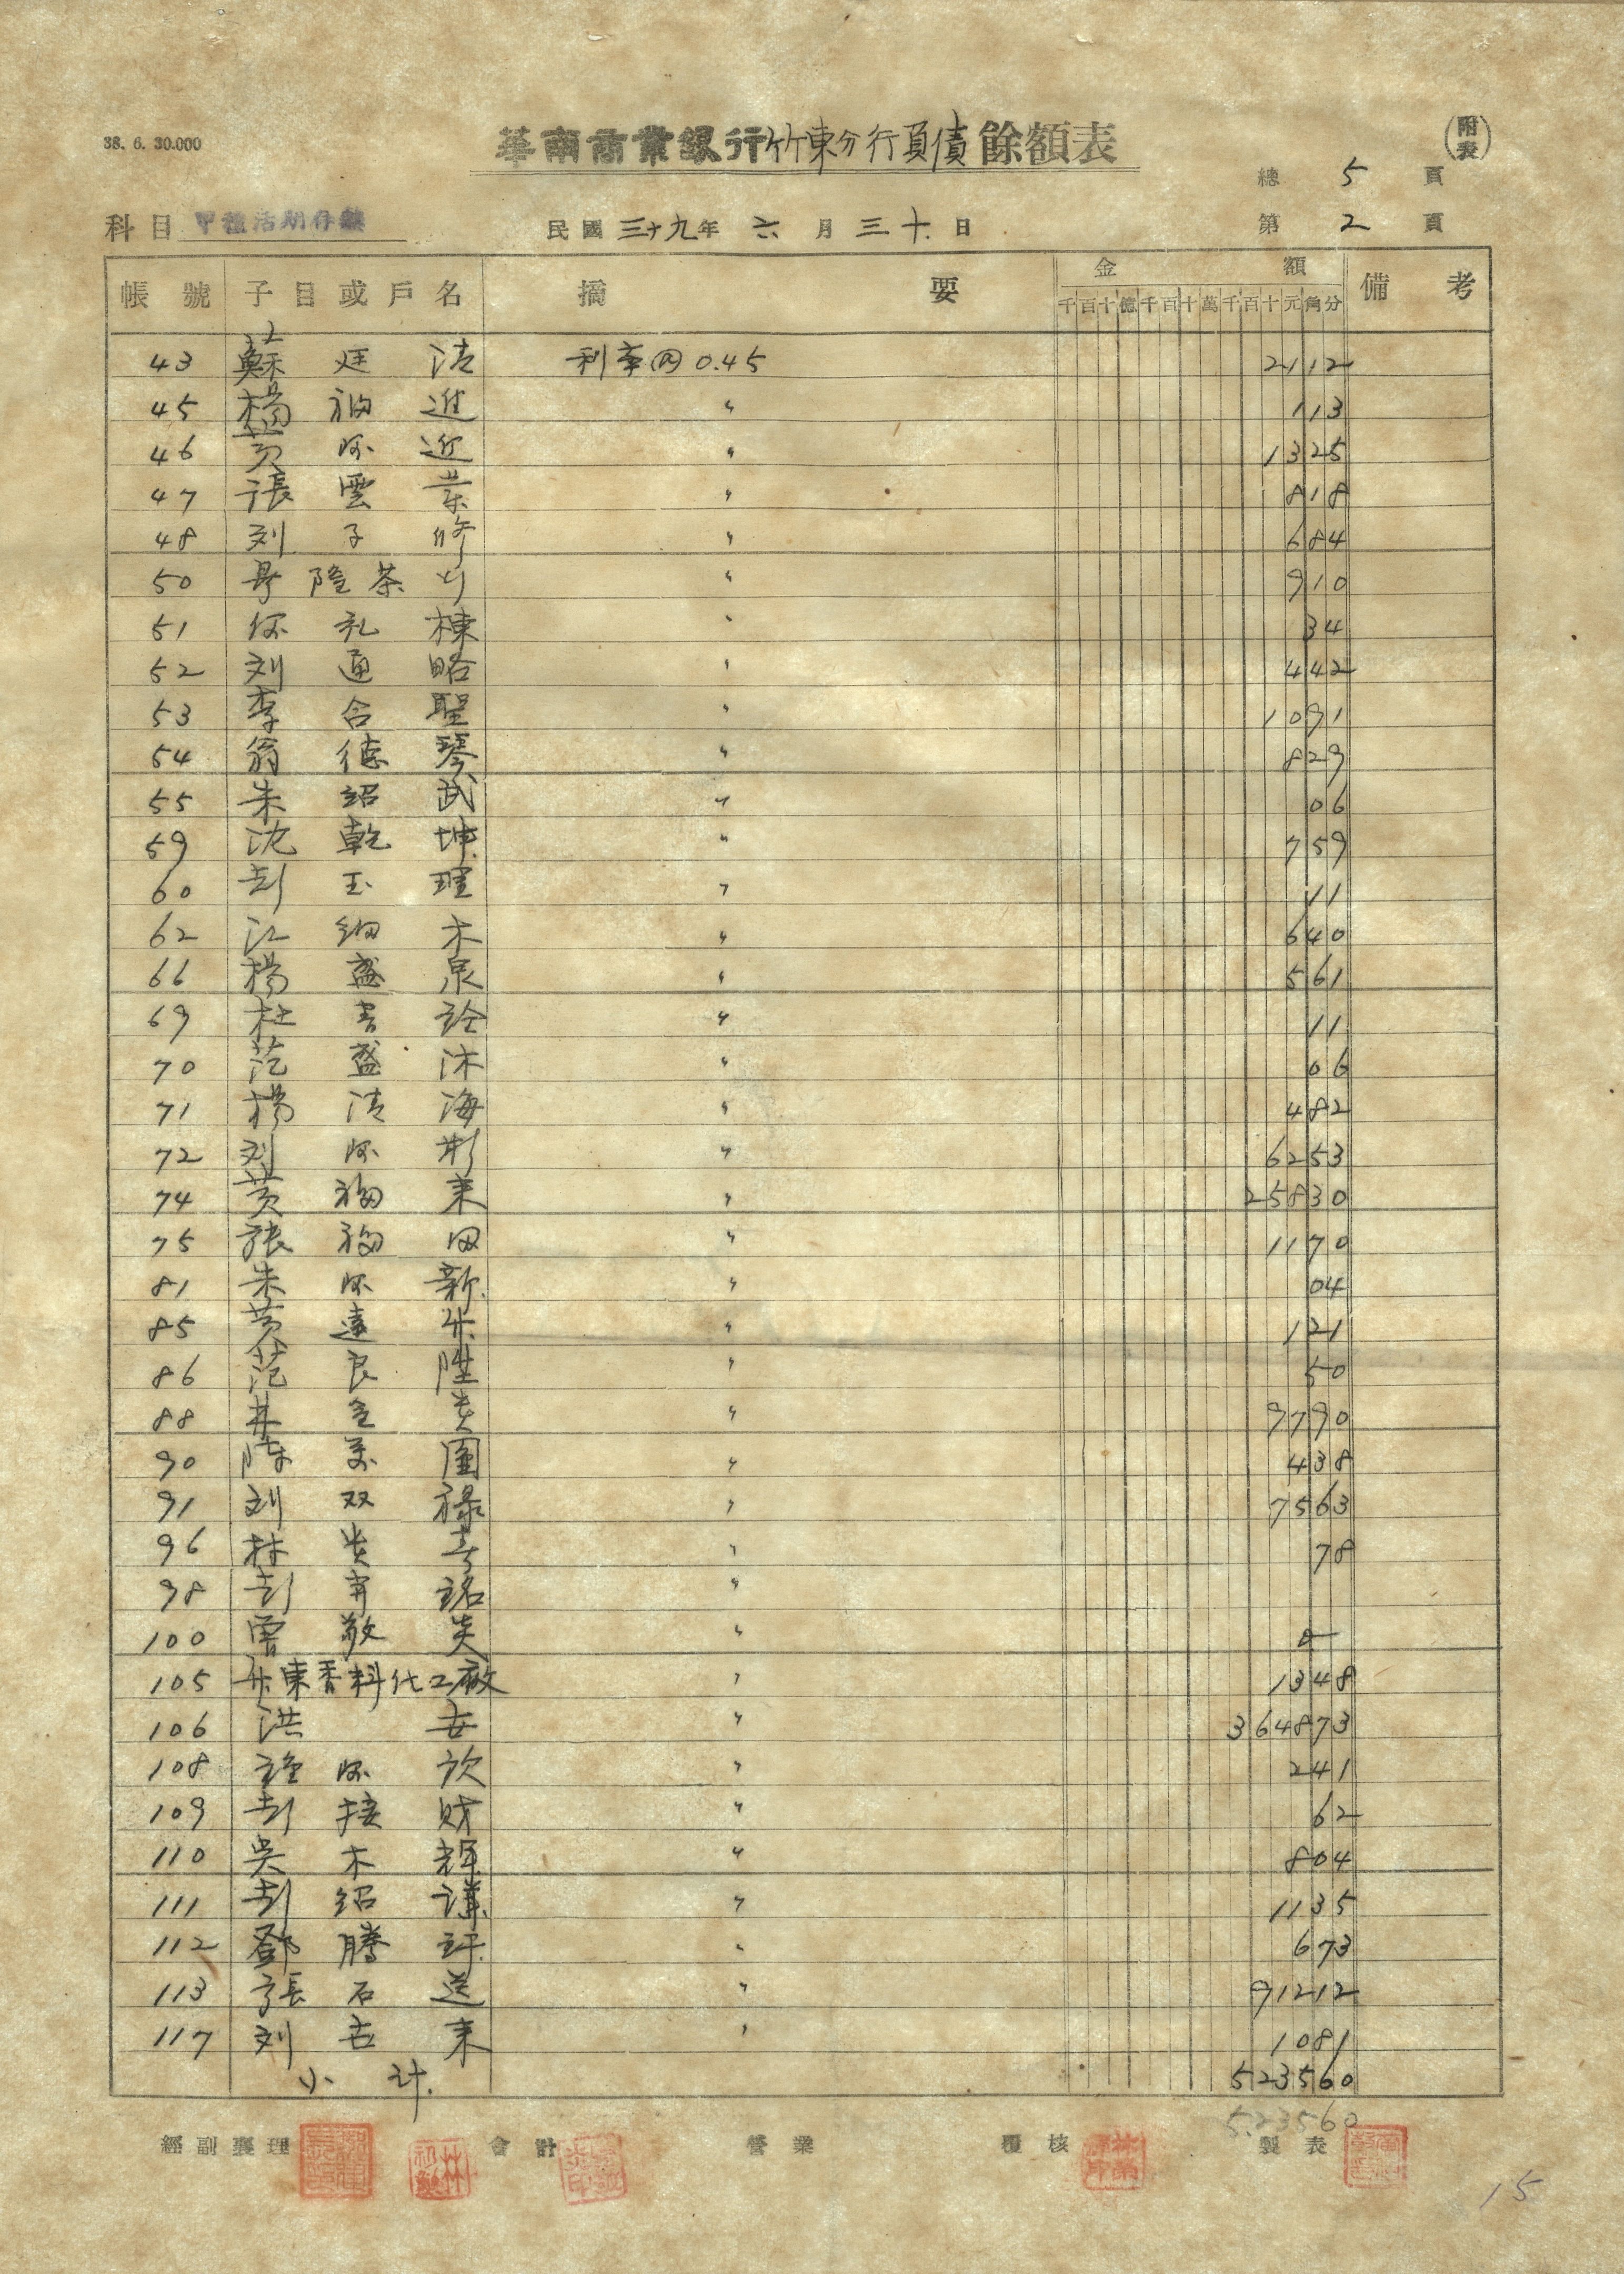 38. 6. 30.000
華南商業銀行竹東分行負債餘額表
(附表)
總 5 頁
科目 甲種活期存款 民國三十九年六月三十日 第 2 頁
帳號 子目或戶名 摘要 金額 備考
千百十億千百十萬千百十元角分
43 蘇廷清 利率 0.45 2112
45 楊福進 〃 113
46 黃阿迎 〃 1325
47 張雲 〃 818
48 刘子修 〃 684
50 隆茶 〃 910
51 礼棟 〃 34
52 刘通略 〃 442
53 李合聖 〃 1091
54 翁德琴 〃 829
55 朱紹武 〃 06
59 沈乾坤 〃 759
60 彭玉瑄 〃 11
62 江細木 〃 640
66 楊盛泉 〃 561
69 杜 〃 11
70 范盛沐 〃 06
71 楊清海 〃 482
72 刘阿彬 〃 6253
74 黃福来 〃 25830
75 張福田 〃 1170
81 朱阿新 〃 04
85 黃遠 〃 121
86 范良陞 〃 50
88 金 〃 9790
90 陳 〃 438
91 刘双祿 〃 7563
96 林 〃 78
98 彭 銘 〃
100 曾敬 〃
105 竹東香料化工廠 〃 1348
106 洪 〃 364873
108 阿欽 〃 241
109 彭接財 〃 62
110 吳木輝 〃 804
111 彭紹謙 〃 1135
112 鄧騰 〃 673
113 張石送 〃 91212
117 刘古来 〃 1081
小計 523560
523560
經副襄理 會計 營業 覆核 製表
15